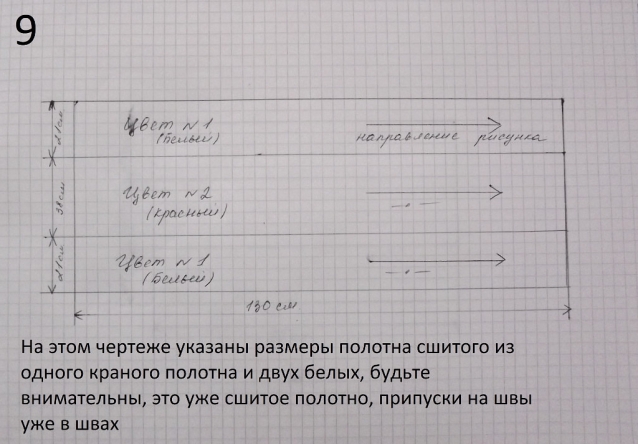 9
21 см
Цвет №1
(Белый)
направление рисунка
38 см
Цвет №2
(Красный)
— · —
21 см
Цвет №1
(Белый)
— · —
130 см
На этом чертеже указаны размеры полотна сшитого из
одного краного полотна и двух белых, будьте
внимательны, это уже сшитое полотно, припуски на швы
уже в швах